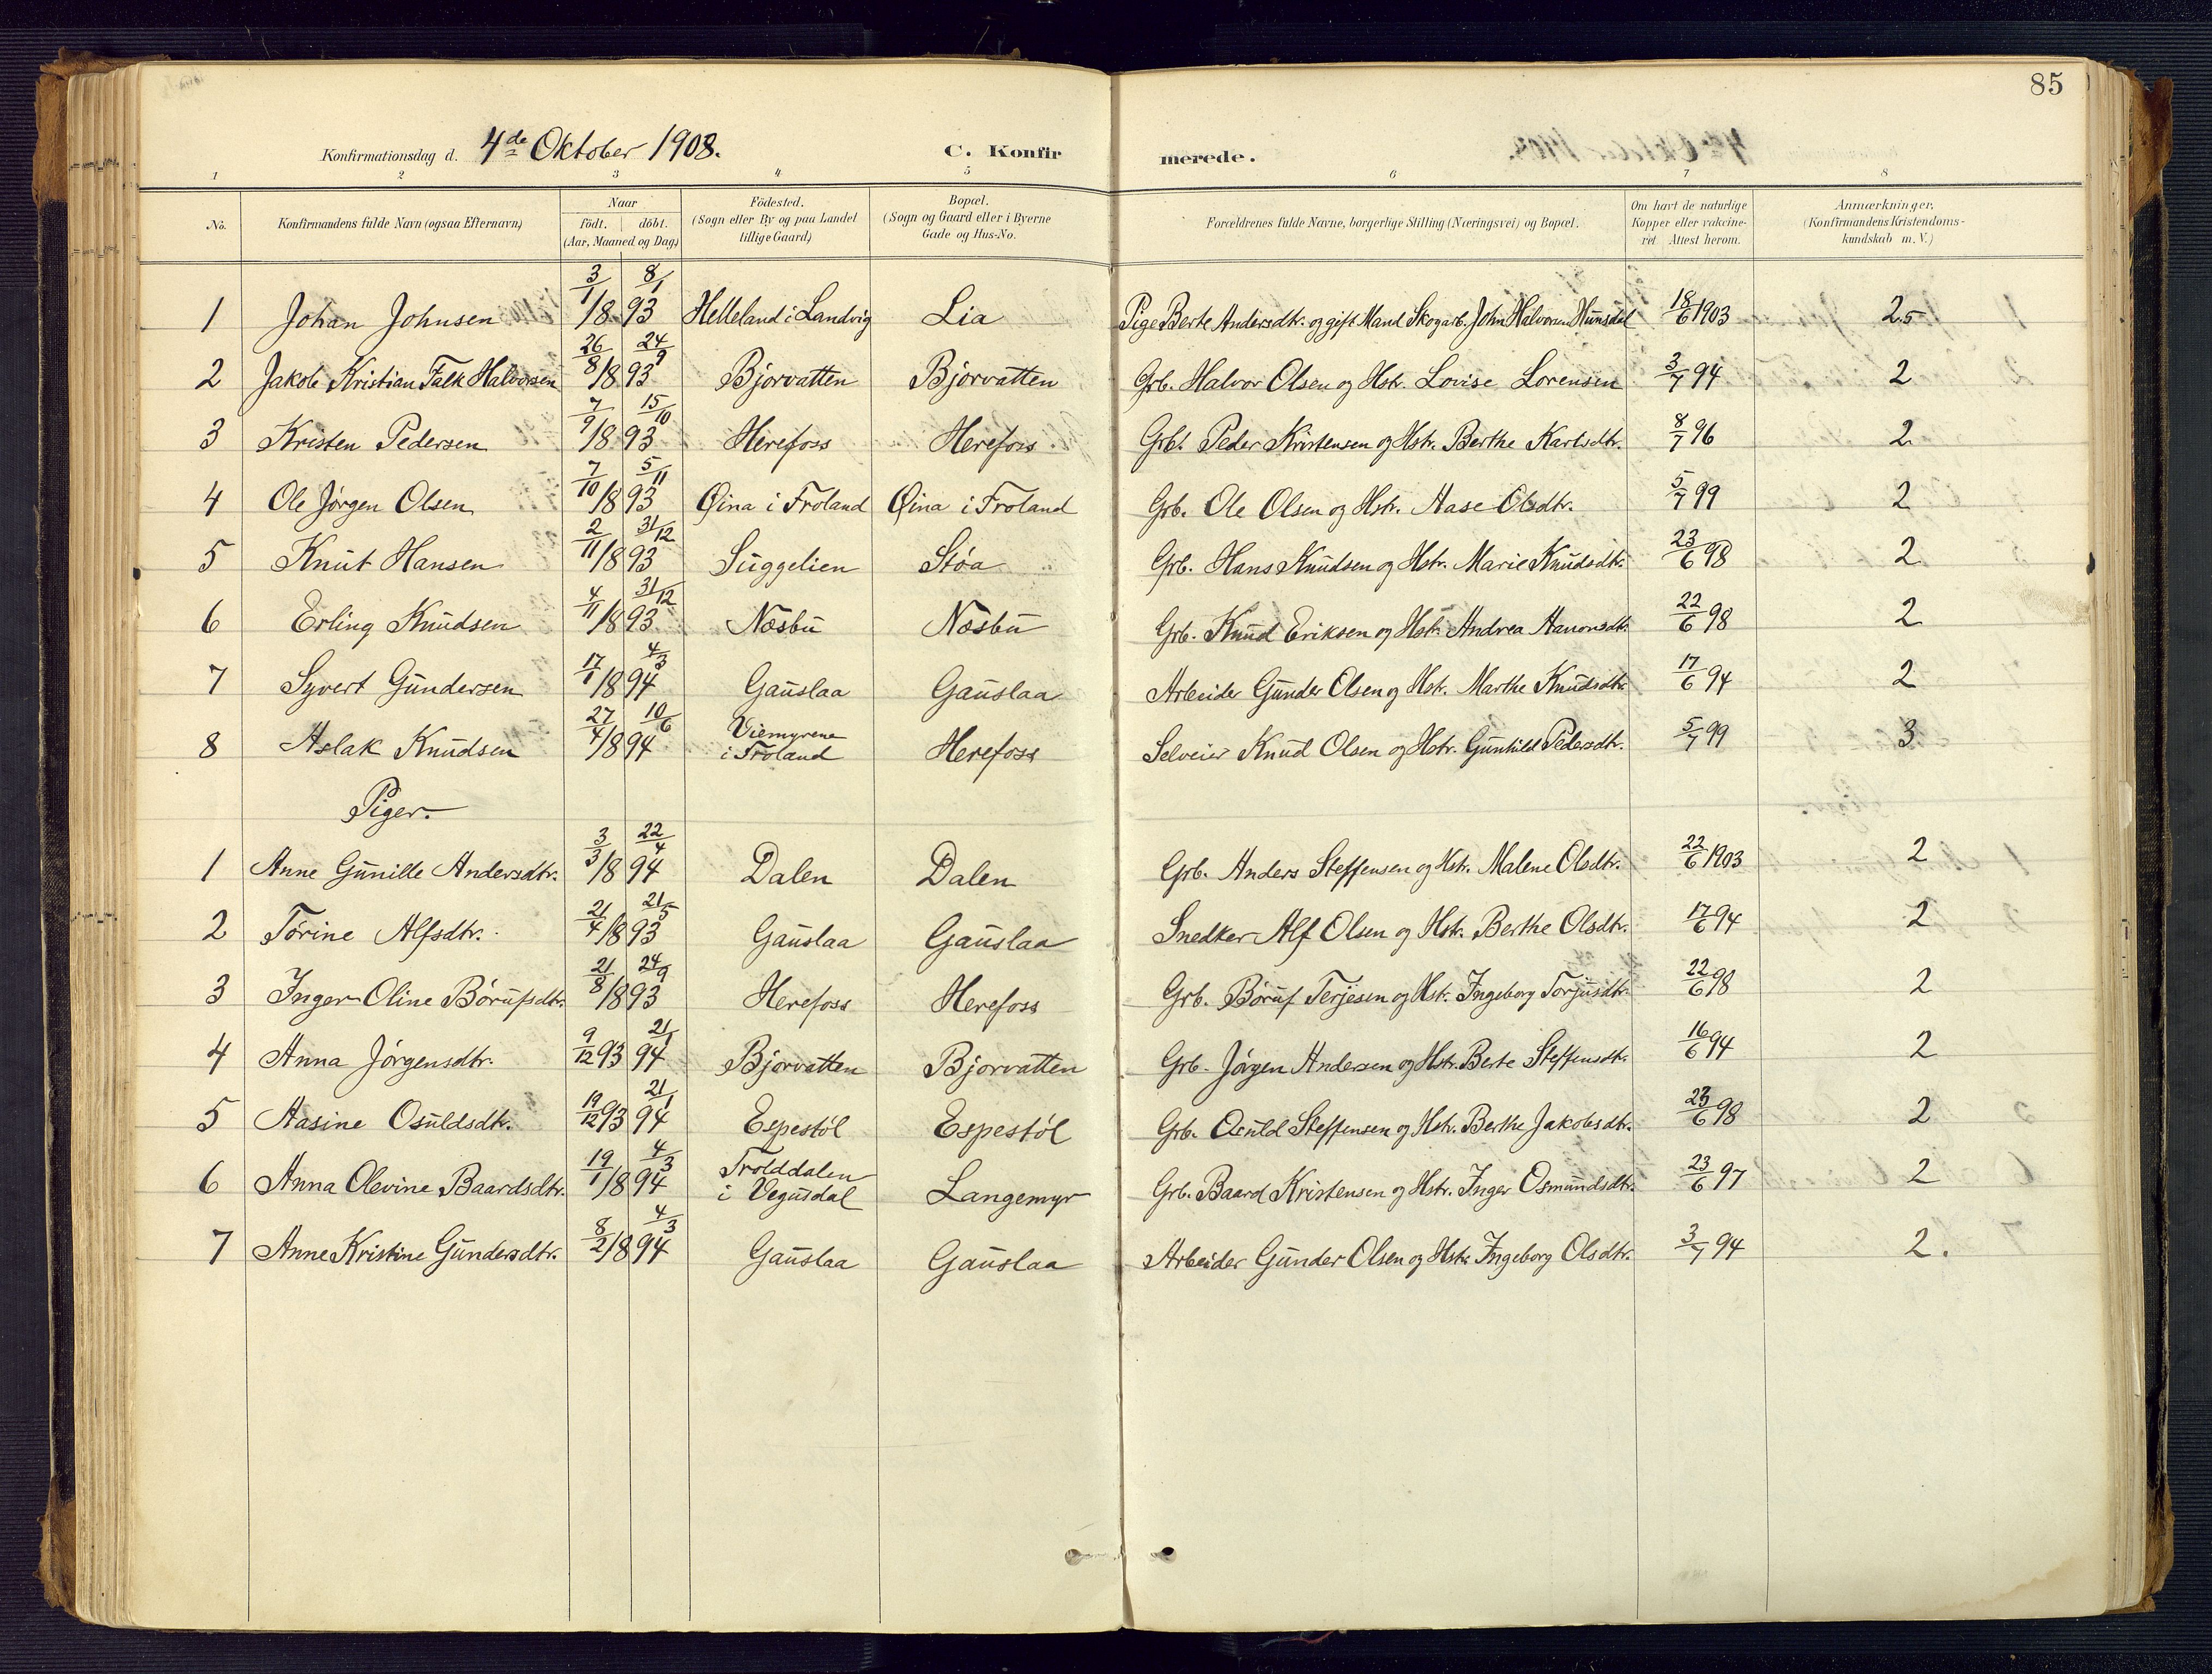 85
Konfirmationsdag d. 4de Oktober 1908. C. Konfirmerede.
1 2 3 4 5 6 7 8
No. Konfirmandens fulde Navn (ogsaa Efternavn) Naar födt. döbt. (Aar, Maaned og Dag) Födested. (Sogn eller By og paa Landet tillige Gaard) Bopæl. (Sogn og Gaard eller i Byerne Gade og Hus-No. Forældrenes fulde Navne, borgerlige Stilling (Næringsvei) og Bopæl. Om havt de naturlige Kopper eller vakcineret. Attest herom. Anmærkninger. (Konfirmandens Kristendomskundskab m. V.)
1 Johan Johnsen 3/1 1893 8/1 Helleland i Landvig Lia Pige Berte Andersdtr. og gift Mand Skogarb. John Halvorsen Hunsdal 18/6 1903 2,5
2 Jakob Kristian Falk Halvorsen 26/8 1893 24/9 Bjorvatten Bjorvatten Grb. Halvor Olsen og Hstr. Lovise Lorensen 3/7 94 2
3 Kristen Pedersen 7/9 1893 15/10 Herefoss Herefoss Grb. Peder Kristensen og Hstr. Berthe Karlsdtr. 8/7 96 2
4 Ole Jørgen Olsen 7/10 1893 5/11 Øina i Froland Øina i Froland Grb. Ole Olsen og Hstr. Aase Olsdtr. 5/7 99 2
5 Knut Hansen 2/11 1893 31/12 Suggelien Støa Grb. Hans Knudsen og Hstr. Marie Knudsdtr. 23/6 98 2
6 Erling Knudsen 4/11 1893 31/12 Næsbu Næsbu Grb. Knud Eriksen og Hstr. Andrea Aanonsdtr. 22/6 98 2
7 Syvert Gundersen 17/1 1894 4/3 Gauslaa Gauslaa Arbeider Gunder Olsen og Hstr. Marthe Knudsdtr. 17/6 94 2
8 Aslak Knudsen 27/4 1894 10/6 Viemyrene i Froland Herefoss Selveier Knud Olsen og Hstr. Gunhild Pedersdtr. 5/7 99 3
Piger.
1 Anne Gunille Andersdtr. 3/3 1894 22/4 Dalen Dalen Grb. Anders Steffensen og Hstr. Malene Olsdtr. 22/6 1903 2
2 Torine Alfsdtr. 21/4 1893 21/5 Gauslaa Gauslaa Snedker Alf Olsen og Hstr. Berthe Olsdtr. 17/6 94 2
3 Inger Oline Børufsdtr. 21/8 1893 24/9 Herefoss Herefoss Grb. Børuf Terjesen og Hstr. Ingeborg Torjusdtr. 22/6 98 2
4 Anna Jørgensdtr. 9/12 93 21/1 94 Bjorvatten Bjorvatten Grb. Jørgen Andersen og Hstr. Berte Steffensdtr. 16/6 94 2
5 Aasine Osuldsdtr. 19/12 93 21/1 94 Espestøl Espestøl Grb. Osuld Steffensen og Hstr. Berthe Jakobsdtr. 23/6 98 2
6 Anna Olevine Baardsdtr. 19/1 1894 4/3 Trolddalen i Vegusdal Langemyr Grb. Baard Kristensen og Hstr. Inger Osmundsdtr. 23/6 97 2
7 Anne Kristine Gundersdtr. 8/2 1894 4/3 Gauslaa Gauslaa Arbeider Gunder Olsen og Hstr. Ingeborg Olsdtr. 3/7 94 2.